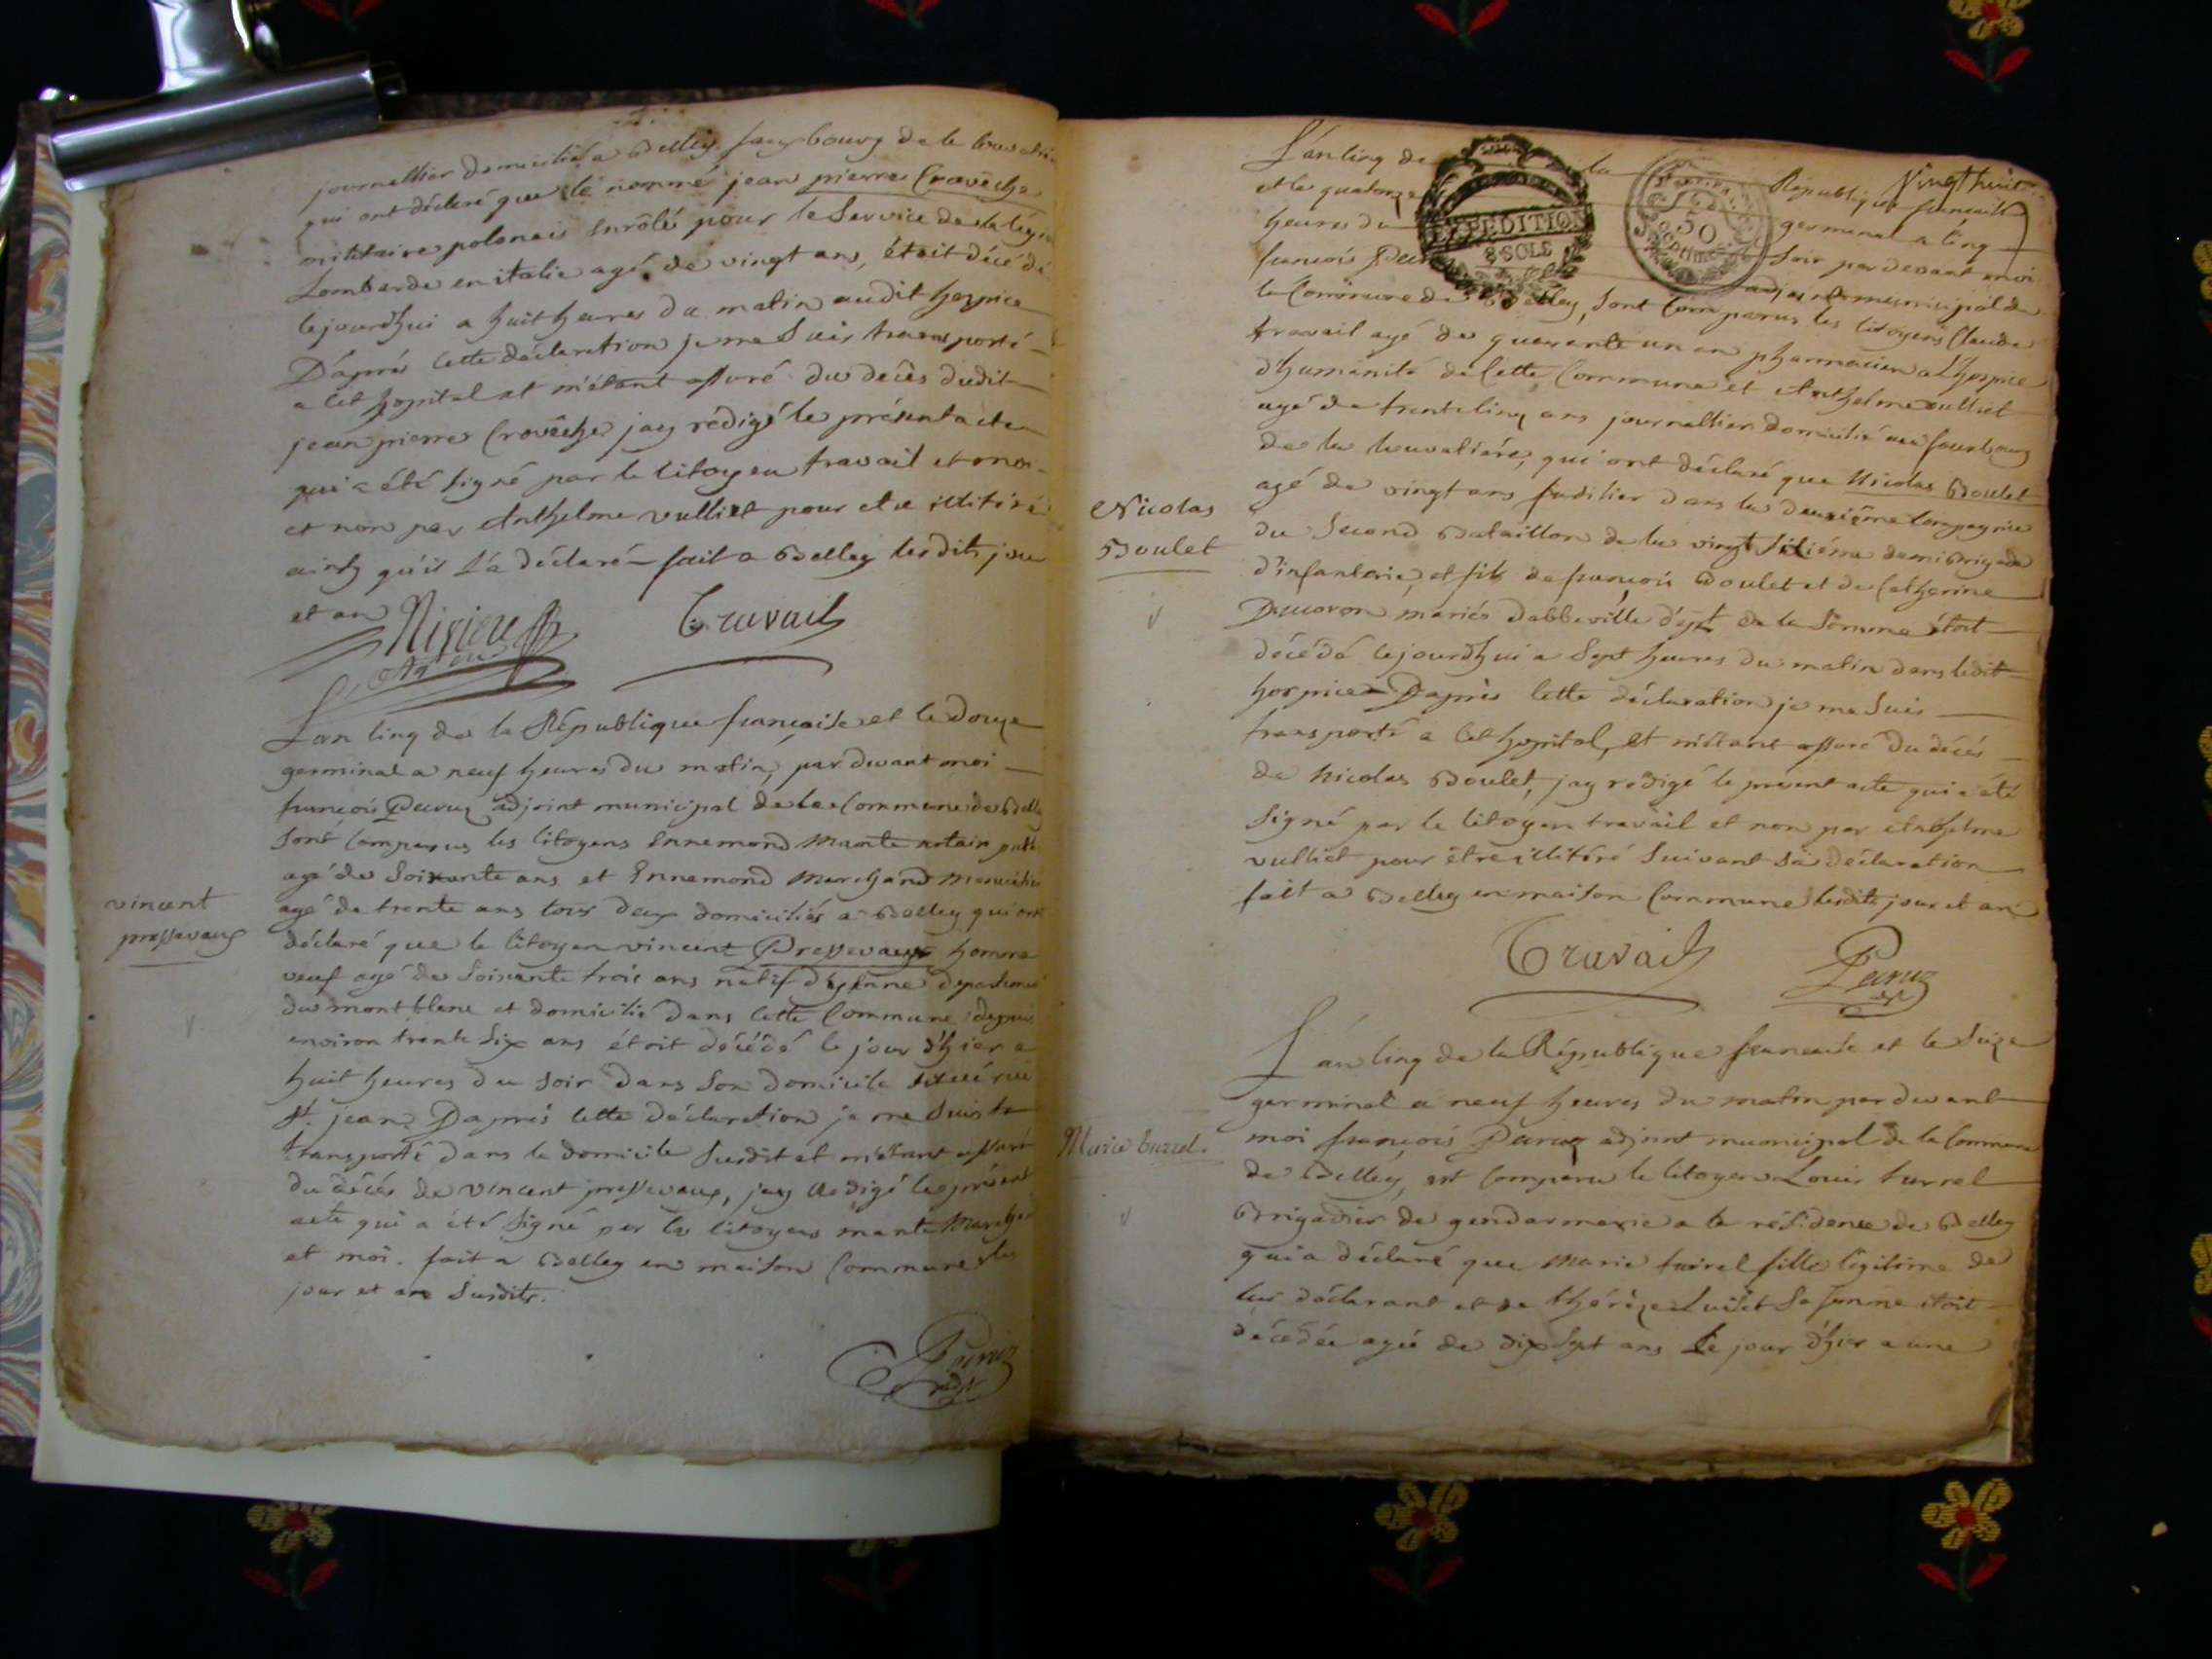 journallier domicilié a Belley fauxbourg de la
qui ont déclaré que le nommé jean pierre Crovêche
militaire polonais enrôlés pour le Service de la légion
Lombarde en italie agé de vingt ans, étoit décédé
cejourdhui a huit heures du matin audit hospice
D'aprés cette déclaration je me Suis transporté
a cet hopital et m'étant assuré du décès dudit
jean pierre Crovêche jay rédigé le présent acte
qui a été signé par le citoyen travail et moi
et non par Anthelme vulliet pour etre illitiré
ainsy qu'il l'a déclaré fait a Belley lesdits jour
et an
Travail
L'an cinq de la République française et le Douze
germinal a neuf heures du matin, par devant moi
françois Peeruz adjoint municipal de la Commune de Belley
sont comparus les citoyens Ennemond Mante notaire public
agé de Soixante ans et Ennemond Marchand Menuisier
vincent
pressevaux
agé de trente ans tous deux domiciliés a Belley qui ont
déclaré que le citoyen vincent Pressevaux homme
veuf agé de Soixante trois ans natif d'yenne departement
du montblanc et domicilié dans cette Commune depuis
environ trente Six ans étoit décédé le jour d'hier a
huit heures du soir dans Son domicile situé rue
St. jean. D'aprés cette déclaration je me suis
transporté dans le domicile Susdit et m'étant assuré
du décés de vincent pressevaux, jay rédigé le présent
acte qui a été signé par les citoyens mante Marchand
et moi. fait a Belley en maison Commune les
jour et an Susdits.
Peeruz
adjt
Vingthuit
L'an cinq de la République française
et le quatorze germinal a cinq
heures du Soir par devant moi
françois adjoint municipal de
la Commune de Belley, sont comparus les citoyens Claude
travail agé de quarante un an pharmacien a L'hospice
d'humanité de cette Commune et Anthelme vulliet
agé de trente cinq ans journallier domicilié au fauxbourg
de la, qui ont déclaré que Nicolas Boulet
EXPEDITION
8 SOLS
50
Nicolas
Boulet
agé de vingt ans fusilier dans la deuxiême compagnie
du Second Bataillon de la vingt Sixiéme demi Brigade
d'infanterie, et fils de françois Boulet et de Catherine
mariés d'abbeville dépt. de la Somme étoit
décédé cejourdhui a Sept heures du matin dans ledit
hospice. D'après cette déclaration je me Suis
transporté a cet hopital, et m'étant assuré du décès
de Nicolas Boulet, jay rédigé le présent acte qui a été
Signé par le citoyen travail et non par Anthelme
vulliet pour être illitéré Suivant Sa déclaration
fait a Belley en maison Commune lesdits jour et an
Travail Peeruz
adjt
L'an cinq de la République française et le Seize
germinal a neuf heures du matin par devant
Marie turrel.
moi françois Peeruz adjoint municipal de la Commune
de Belley, est comparu le citoyen Louis turrel
Brigadier de gendarmerie a la résidence de Belley
qui a déclaré que Marie turrel fille légitime de
lui déclarant et de thérèze Sa femme étoit
décédée agée de dix Sept ans Le jour d'hier a une